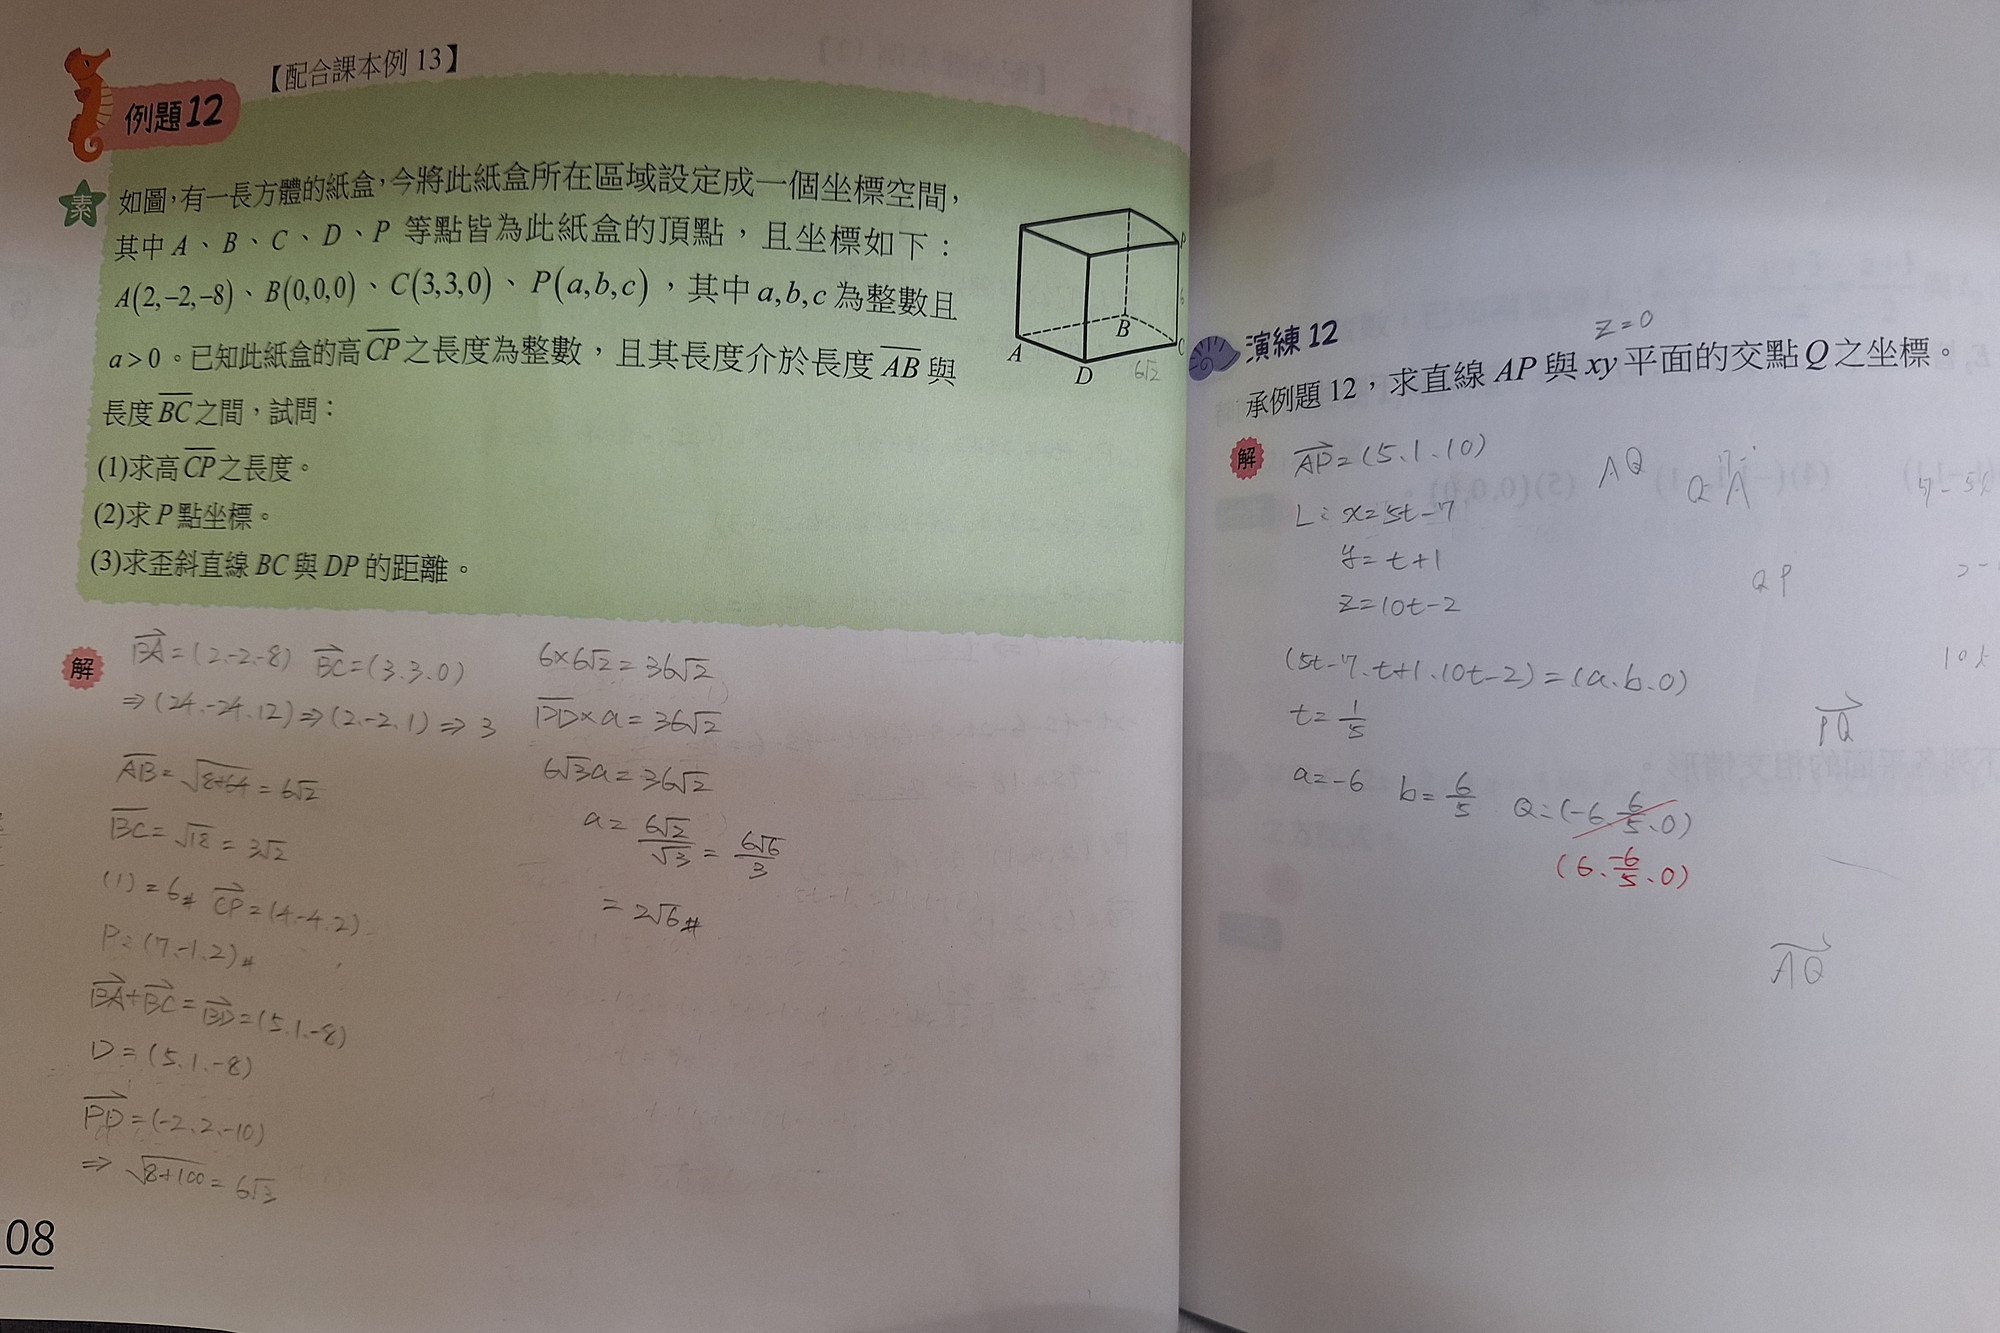 【配合課本例 13】
例題12
素
如圖,有一長方體的紙盒,今將此紙盒所在區域設定成一個坐標空間,
其中 A、B、C、D、P 等點皆為此紙盒的頂點,且坐標如下:
A(2,−2,−8)、B(0,0,0)、C(3,3,0)、P(a,b,c),其中 a,b,c 為整數且
a>0。已知此紙盒的高 CP 之長度為整數,且其長度介於長度 AB 與
長度 BC 之間,試問:
(1)求高 CP 之長度。
(2)求 P 點坐標。
(3)求歪斜直線 BC 與 DP 的距離。
P
6
B
A
C
D
6√2
解
BA=(2.-2.-8) BC=(3.3.0)
⇒(24.-24.12)⇒(2.-2.1)⇒3
AB=√8+64=6√2
BC=√18=3√2
(1)=6# CP=(4.-4.2)
P=(7.-1.2)#
BA+BC=BD=(5.1.-8)
D=(5.1.-8)
PD=(-2.2.-10)
⇒√8+100=6√3
6×6√2=36√2
PD×a=36√2
6√3a=36√2
a=6√2/√3=6√6/3
=2√6#
08
演練12
z=0
承例題 12,求直線 AP 與 xy 平面的交點 Q 之坐標。
解
AP=(5.1.10)
AQ
Q-A
L: x=5t-7
y=t+1
z=10t-2
QP
(5t-7.t+1.10t-2)=(a.b.0)
t=1/5
PQ
a=-6 b=6/5 Q=(-6.6/5.0)
(6.-6/5.0)
AQ